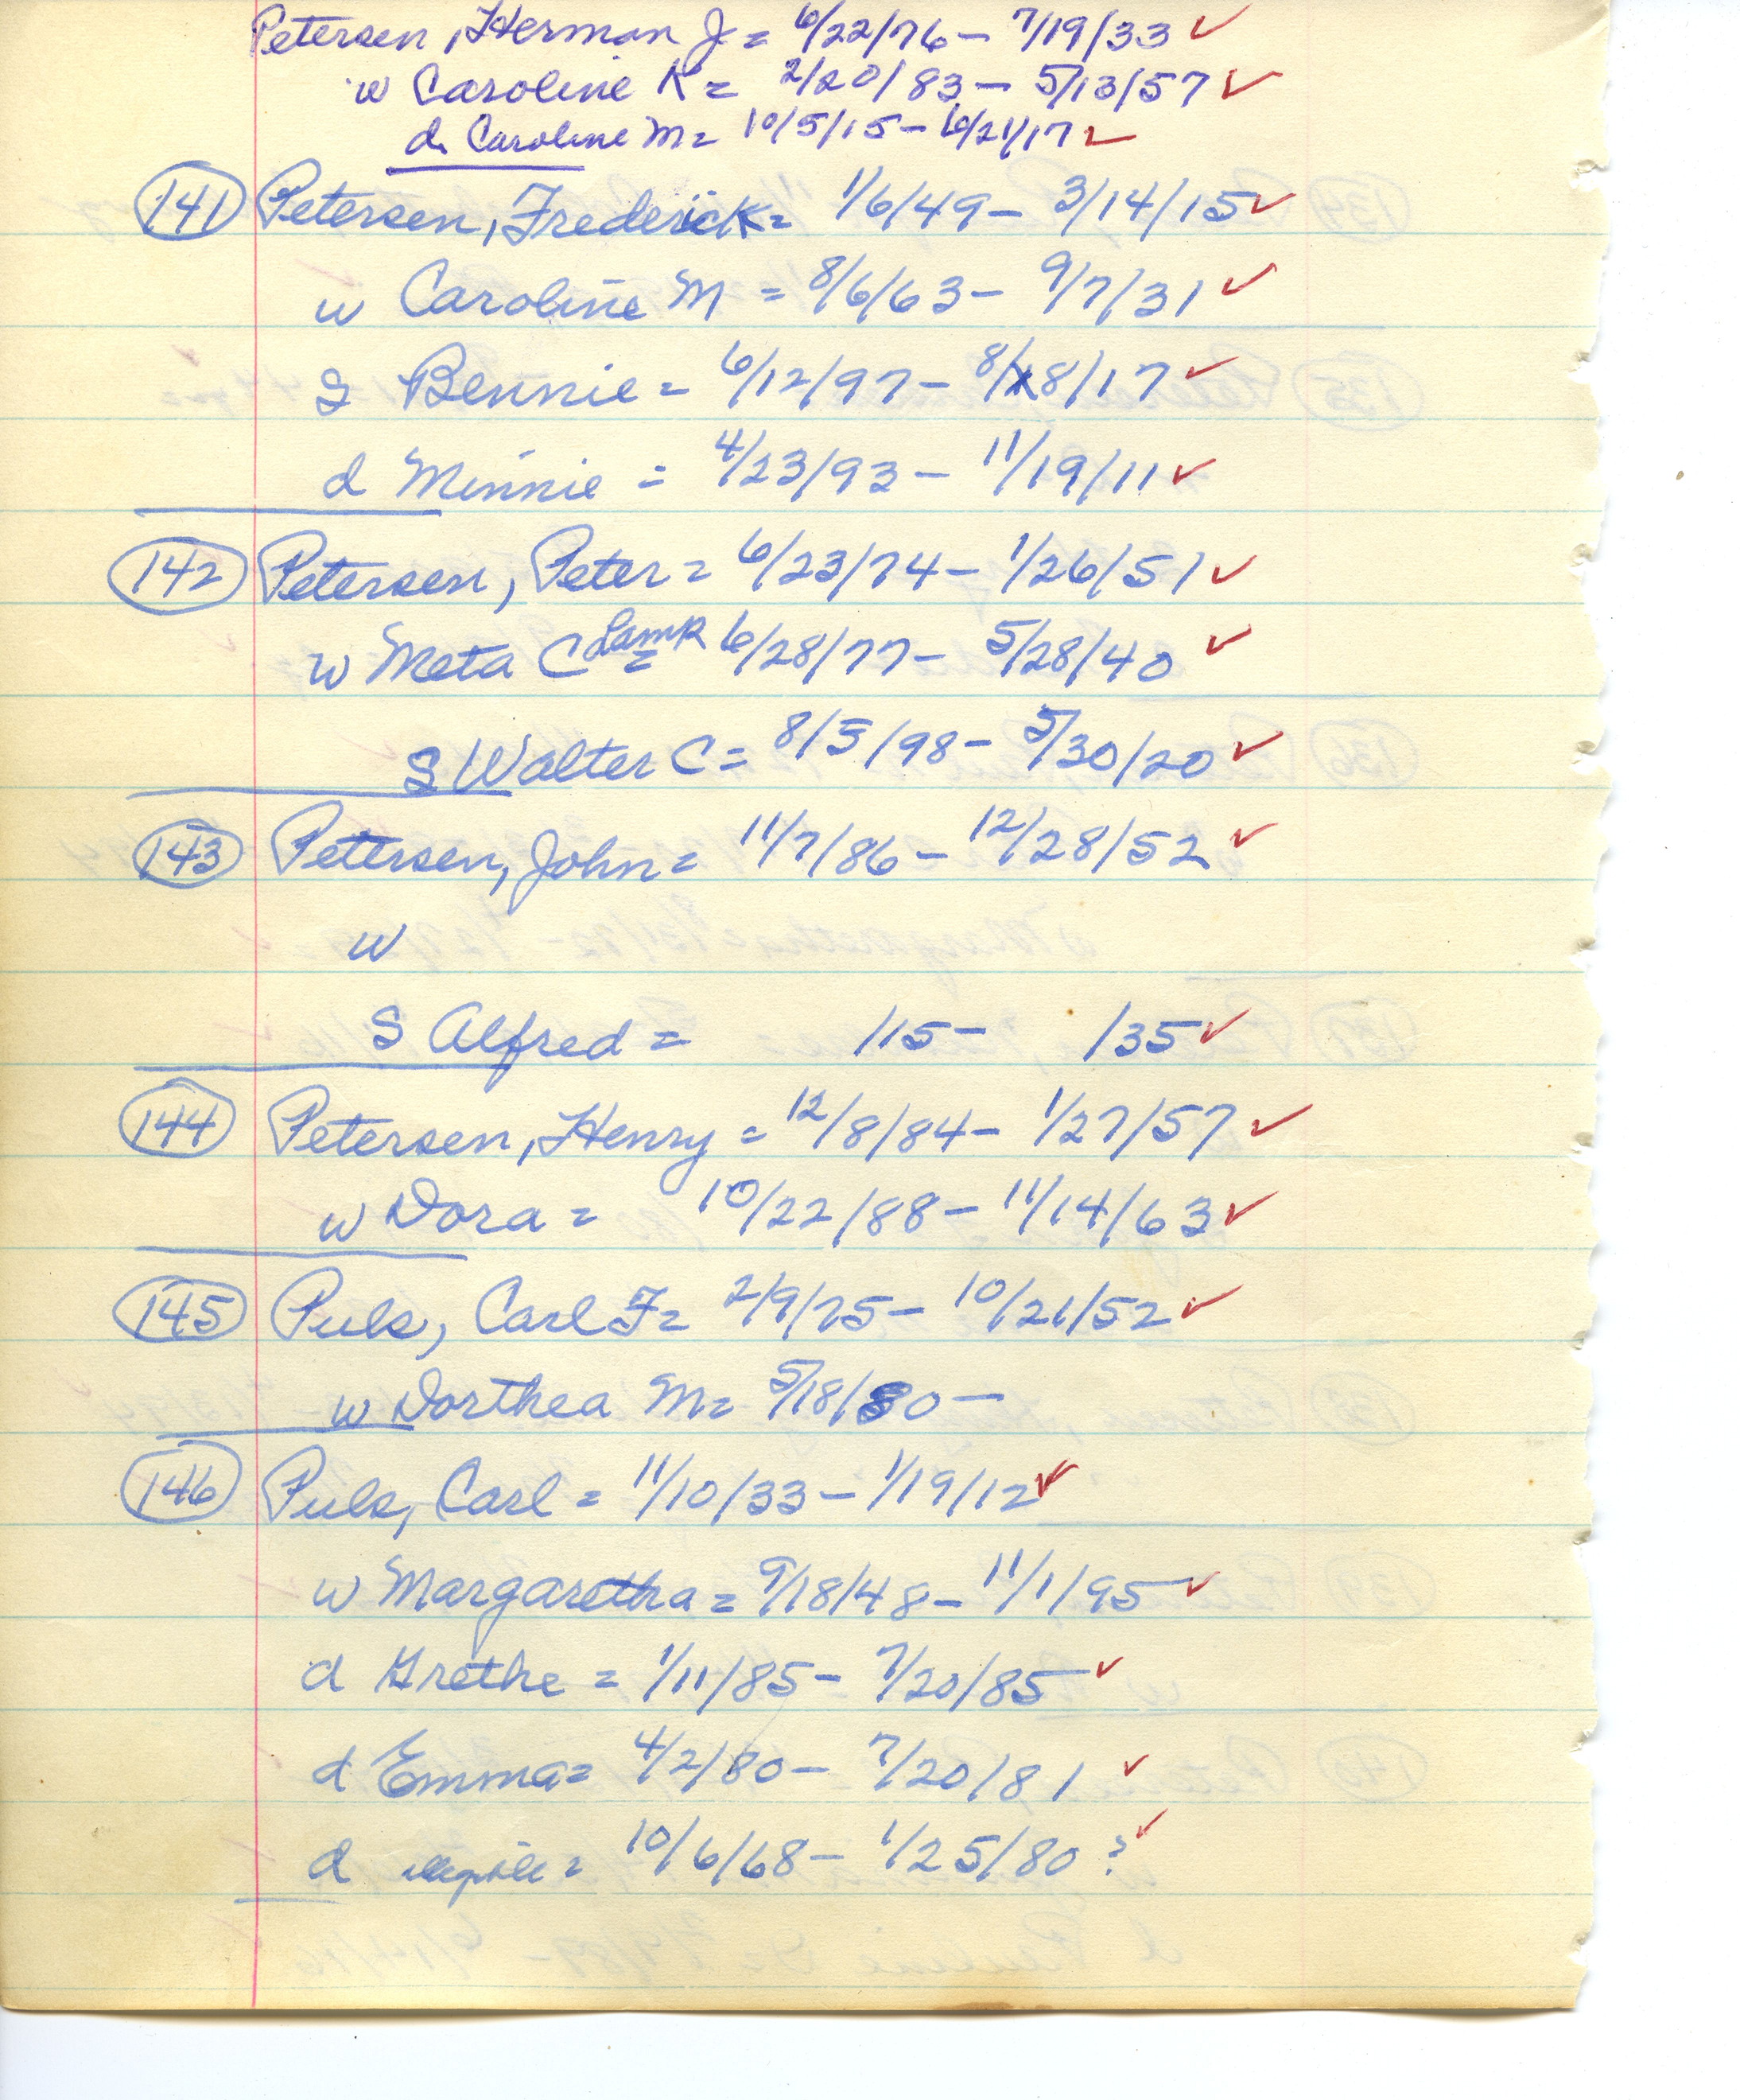 Petersen, Herman J = 6/22/76 - 7/19/33 ✓
w Caroline K = 2/20/83 - 5/13/57 ✓
d. Caroline M = 10/5/15 - 6/21/17 ✓
141 Petersen, Frederick = 1/6/49 - 3/14/15 ✓
w Caroline M = 8/6/63 - 9/7/31 ✓
S Bennie = 6/12/97 - 8/18/17 ✓
d Minnie = 4/23/93 - 11/19/11 ✓
142 Petersen, Peter = 6/23/74 - 1/26/51 ✓
w Meta C Lamk = 6/28/77 - 5/28/40 ✓
S Walter C = 8/5/98 - 5/30/20 ✓
143 Petersen, John = 11/7/86 - 12/28/52 ✓
w
S Alfred = /15 - /35 ✓
144 Petersen, Henry = 12/8/84 - 1/27/57 ✓
w Dora = 10/22/88 - 11/14/63 ✓
145 Puls, Carl F = 2/9/75 - 10/21/52 ✓
w Dorthea M = 5/18/80 -
146 Puls, Carl = 11/10/33 - 1/19/12 ✓
w Margaretha = 9/18/48 - 11/1/95 ✓
d Grethe = 1/11/85 - 7/20/85 ✓
d Emma = 4/2/80 - 7/20/81 ✓
d illegible = 10/6/68 - 1/25/80 ? ✓